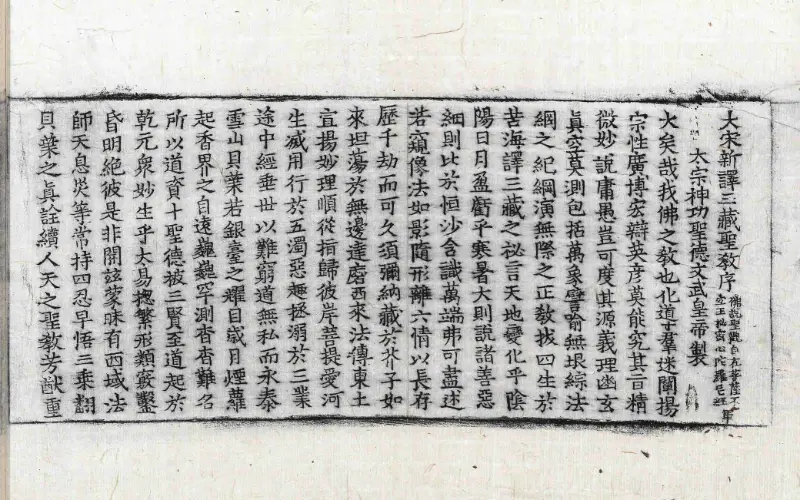 大宋新譯三藏聖教序
太宗神功聖德文武皇帝製
大矣哉我佛之教也化導群迷闡揚
宗性廣博宏辯英彦莫能究其旨精
微妙說庸愚豈可度其源義理幽玄
真空莫測包括萬象譬喻無垠綜法
網之紀綱演無際之正教拔四生於
苦海譯三藏之祕言天地變化乎陰
陽日月盈虧乎寒暑大則說諸善惡
細則比於恒沙含識萬端弗可盡述
若窺像法如影隨形離六情以長存
歷千劫而可久須彌納藏於芥子如
來坦蕩於無邊達磨西來法傳東土
宣揚妙理順從指歸彼岸菩提愛河
生滅用行於五濁惡趣拯溺於三業
途中經垂世以難窮道無私而永泰
雪山貝葉若銀臺之耀目歲月煙蘿
起香界之自遠巍巍罕測杳杳難名
所以道資十聖德被三賢至道起於
乾元衆妙生乎太易揔繁形類竅鑿
昏明絕彼是非開茲蒙昧有西域法
師天息災等常持四忍早悟三乘翻
貝葉之真詮續人天之聖教芳猷重